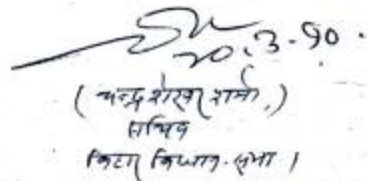 20.3.90.
( चन्द्र शेखर शर्मा, )
सचिव
बिहार विधान-सभा ।